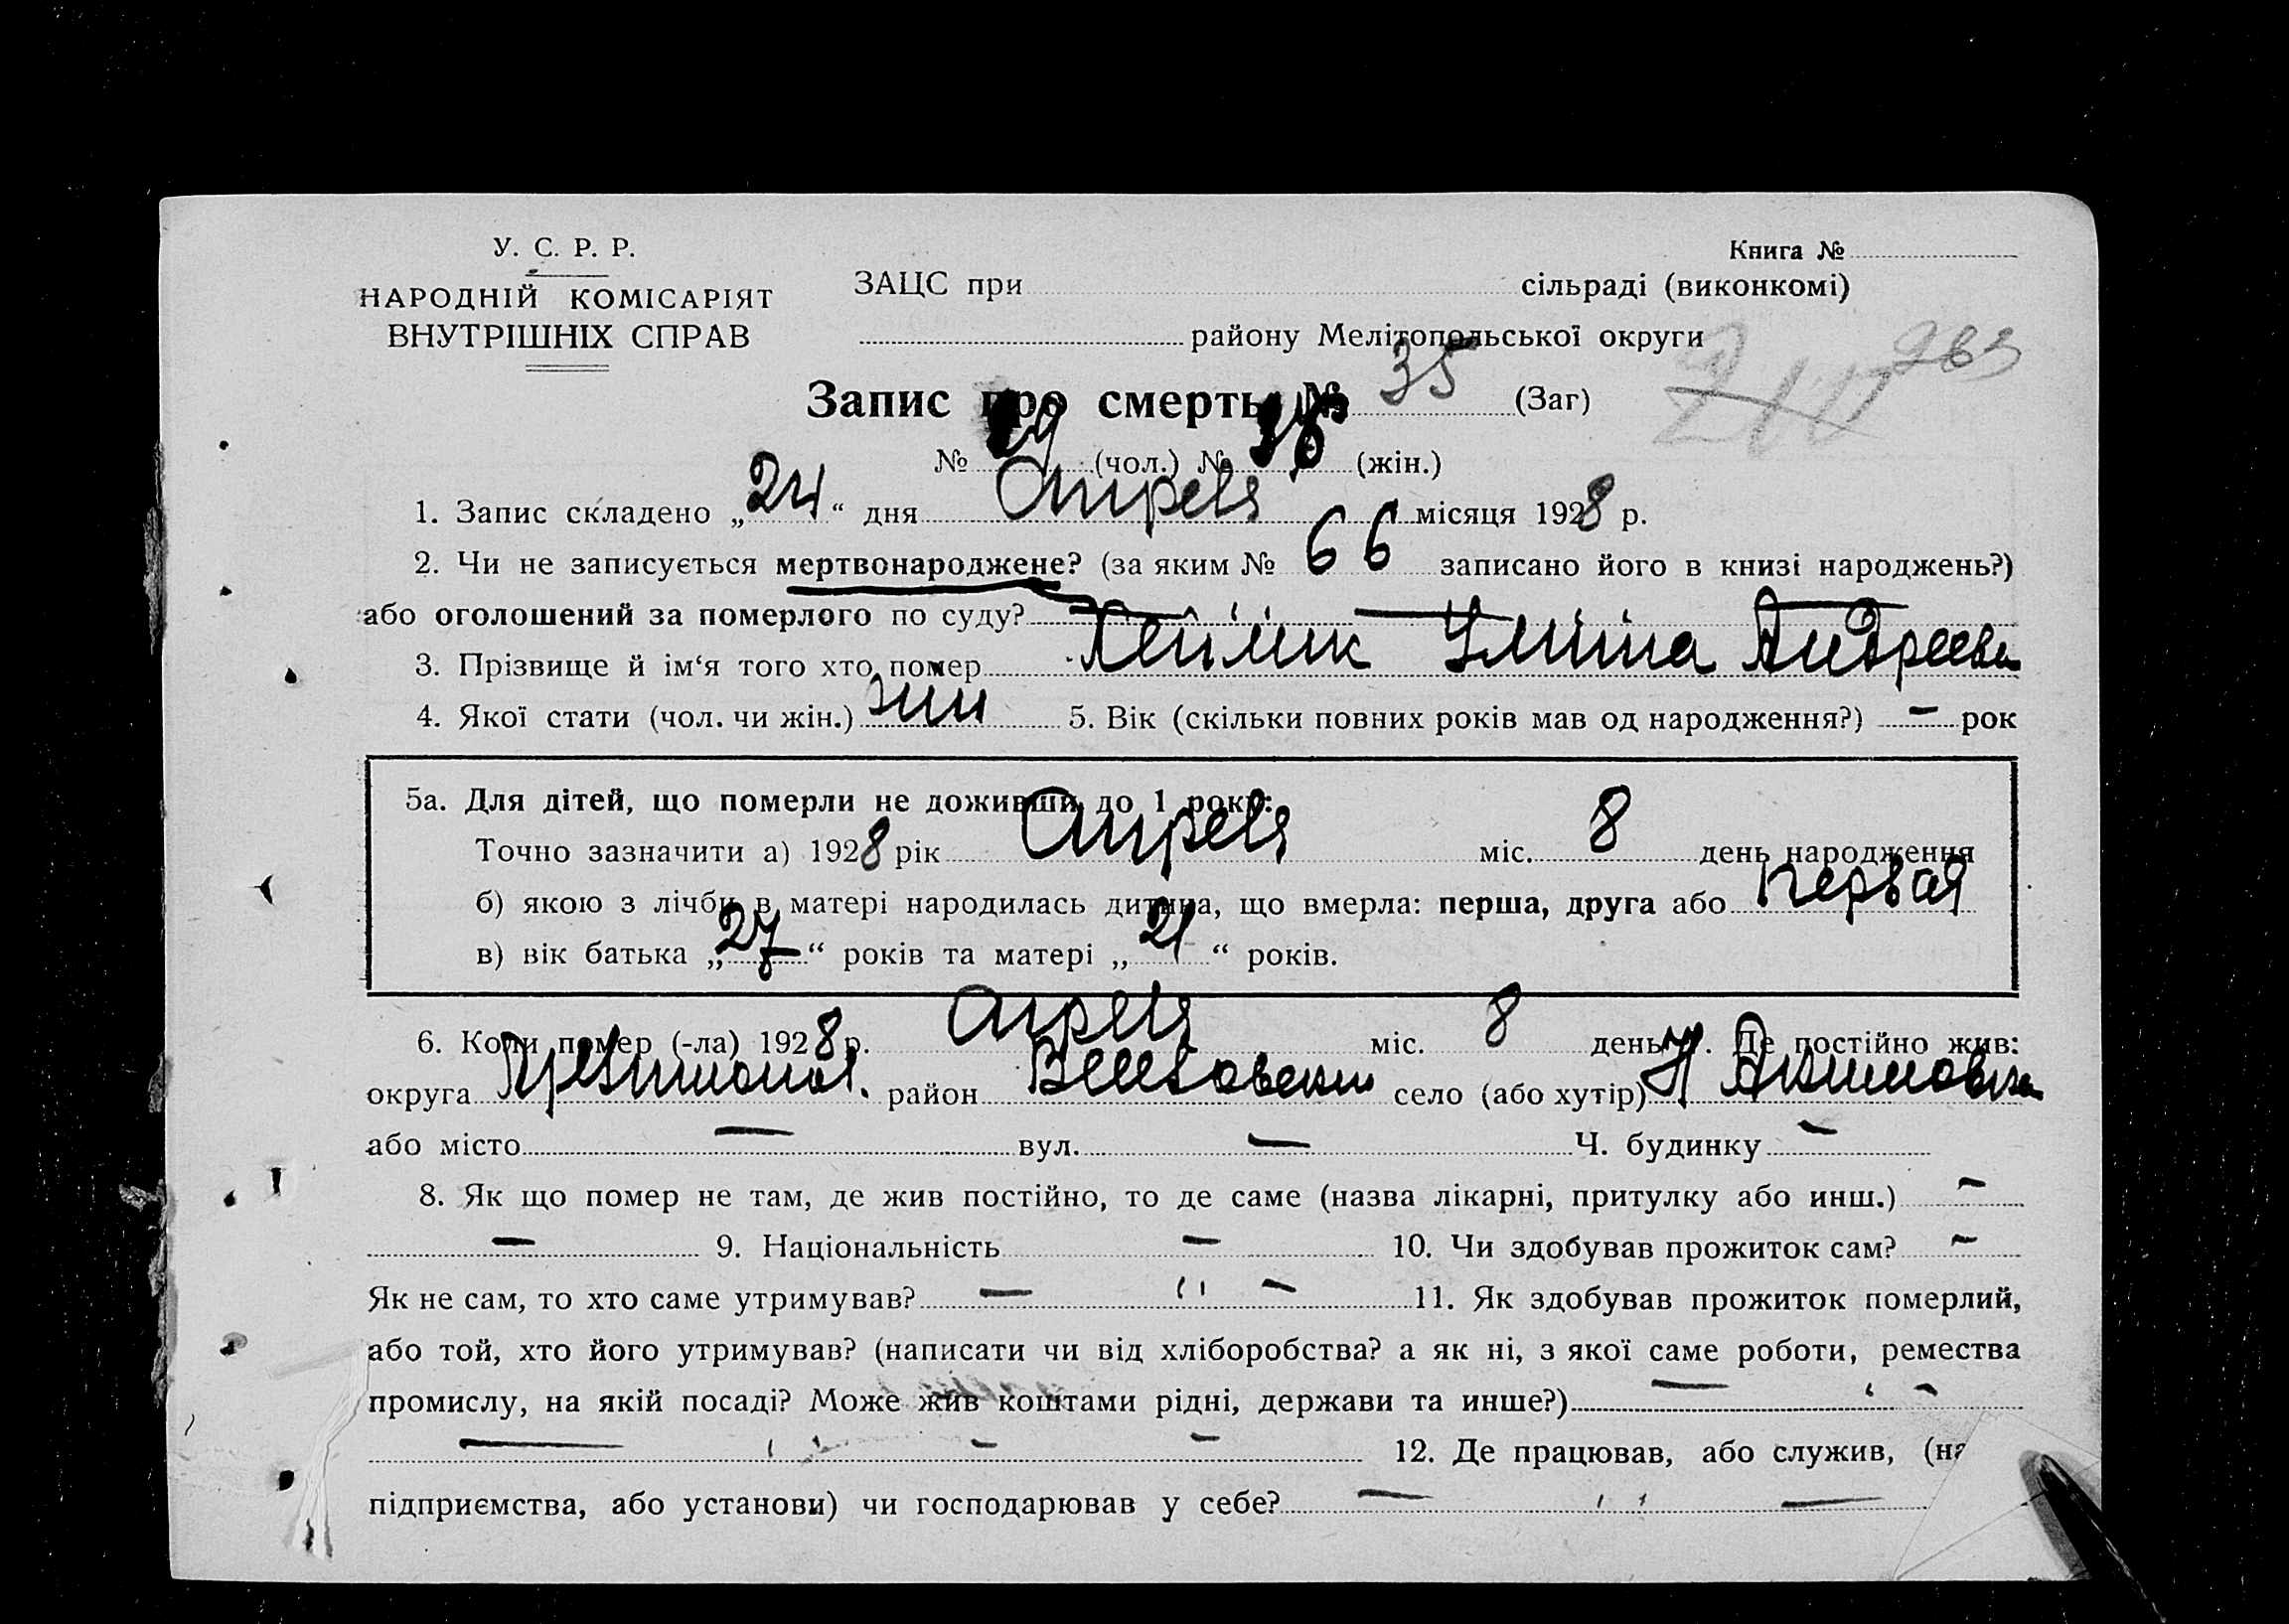 У. С. Р. Р.
НАРОДНІЙ КОМІСАРІЯТ
ВНУТРІШНІХ СПРАВ
Книга №
ЗАЦС при сільраді (виконкомі)
району Мелітопольської округи
263
Запис про смерть № 35 (Заг)
№ 19 (чол.) № (жін.)
1. Запис складено „24“ дня Апреля місяця 1928 р.
2. Чи не записується мертвонароджене? (за яким № 66 записано його в книзі народжень?)
або оголошений за померлого по суду? —
3. Прізвище й ім‘я того хто помер Андреева
4. Якої стати (чол. чи жін.) жин 5. Вік (скільки повних років мав од народження?) — рок
5а. Для дітей, що померли не доживши до 1 року:
Точно зазначити а) 1928 рік Апреля міс. 8 день народження
б) якою з лічби в матері народилась дитина, що вмерла: перша, друга або первая
в) вік батька „27“ років та матері „21“ років.
6. Коли помер (-ла) 1928 р. Апреля міс. 8 день 7. Де постійно жив:
округа район село (або хутір)
або місто — вул. — Ч. будинку —
8. Як що помер не там, де жив постійно, то де саме (назва лікарні, притулку або инш.) —
— 9. Національність — 10. Чи здобував прожиток сам? —
Як не сам, то хто саме утримував? — " — 11. Як здобував прожиток померлий,
або той, хто його утримував? (написати чи від хліборобства? а як ні, з якої саме роботи, ремества
промислу, на якій посаді? Може жив коштами рідні, держави та инше?) —
— 12. Де працював, або служив, (на
підприємства, або установи) чи господарював у себе? — " —